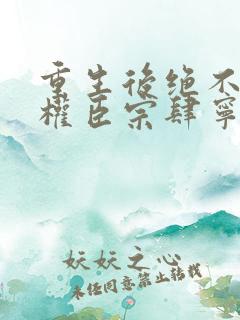 重生後绝不
權臣宗肆寧
妖妖之心
未经同意禁止转载